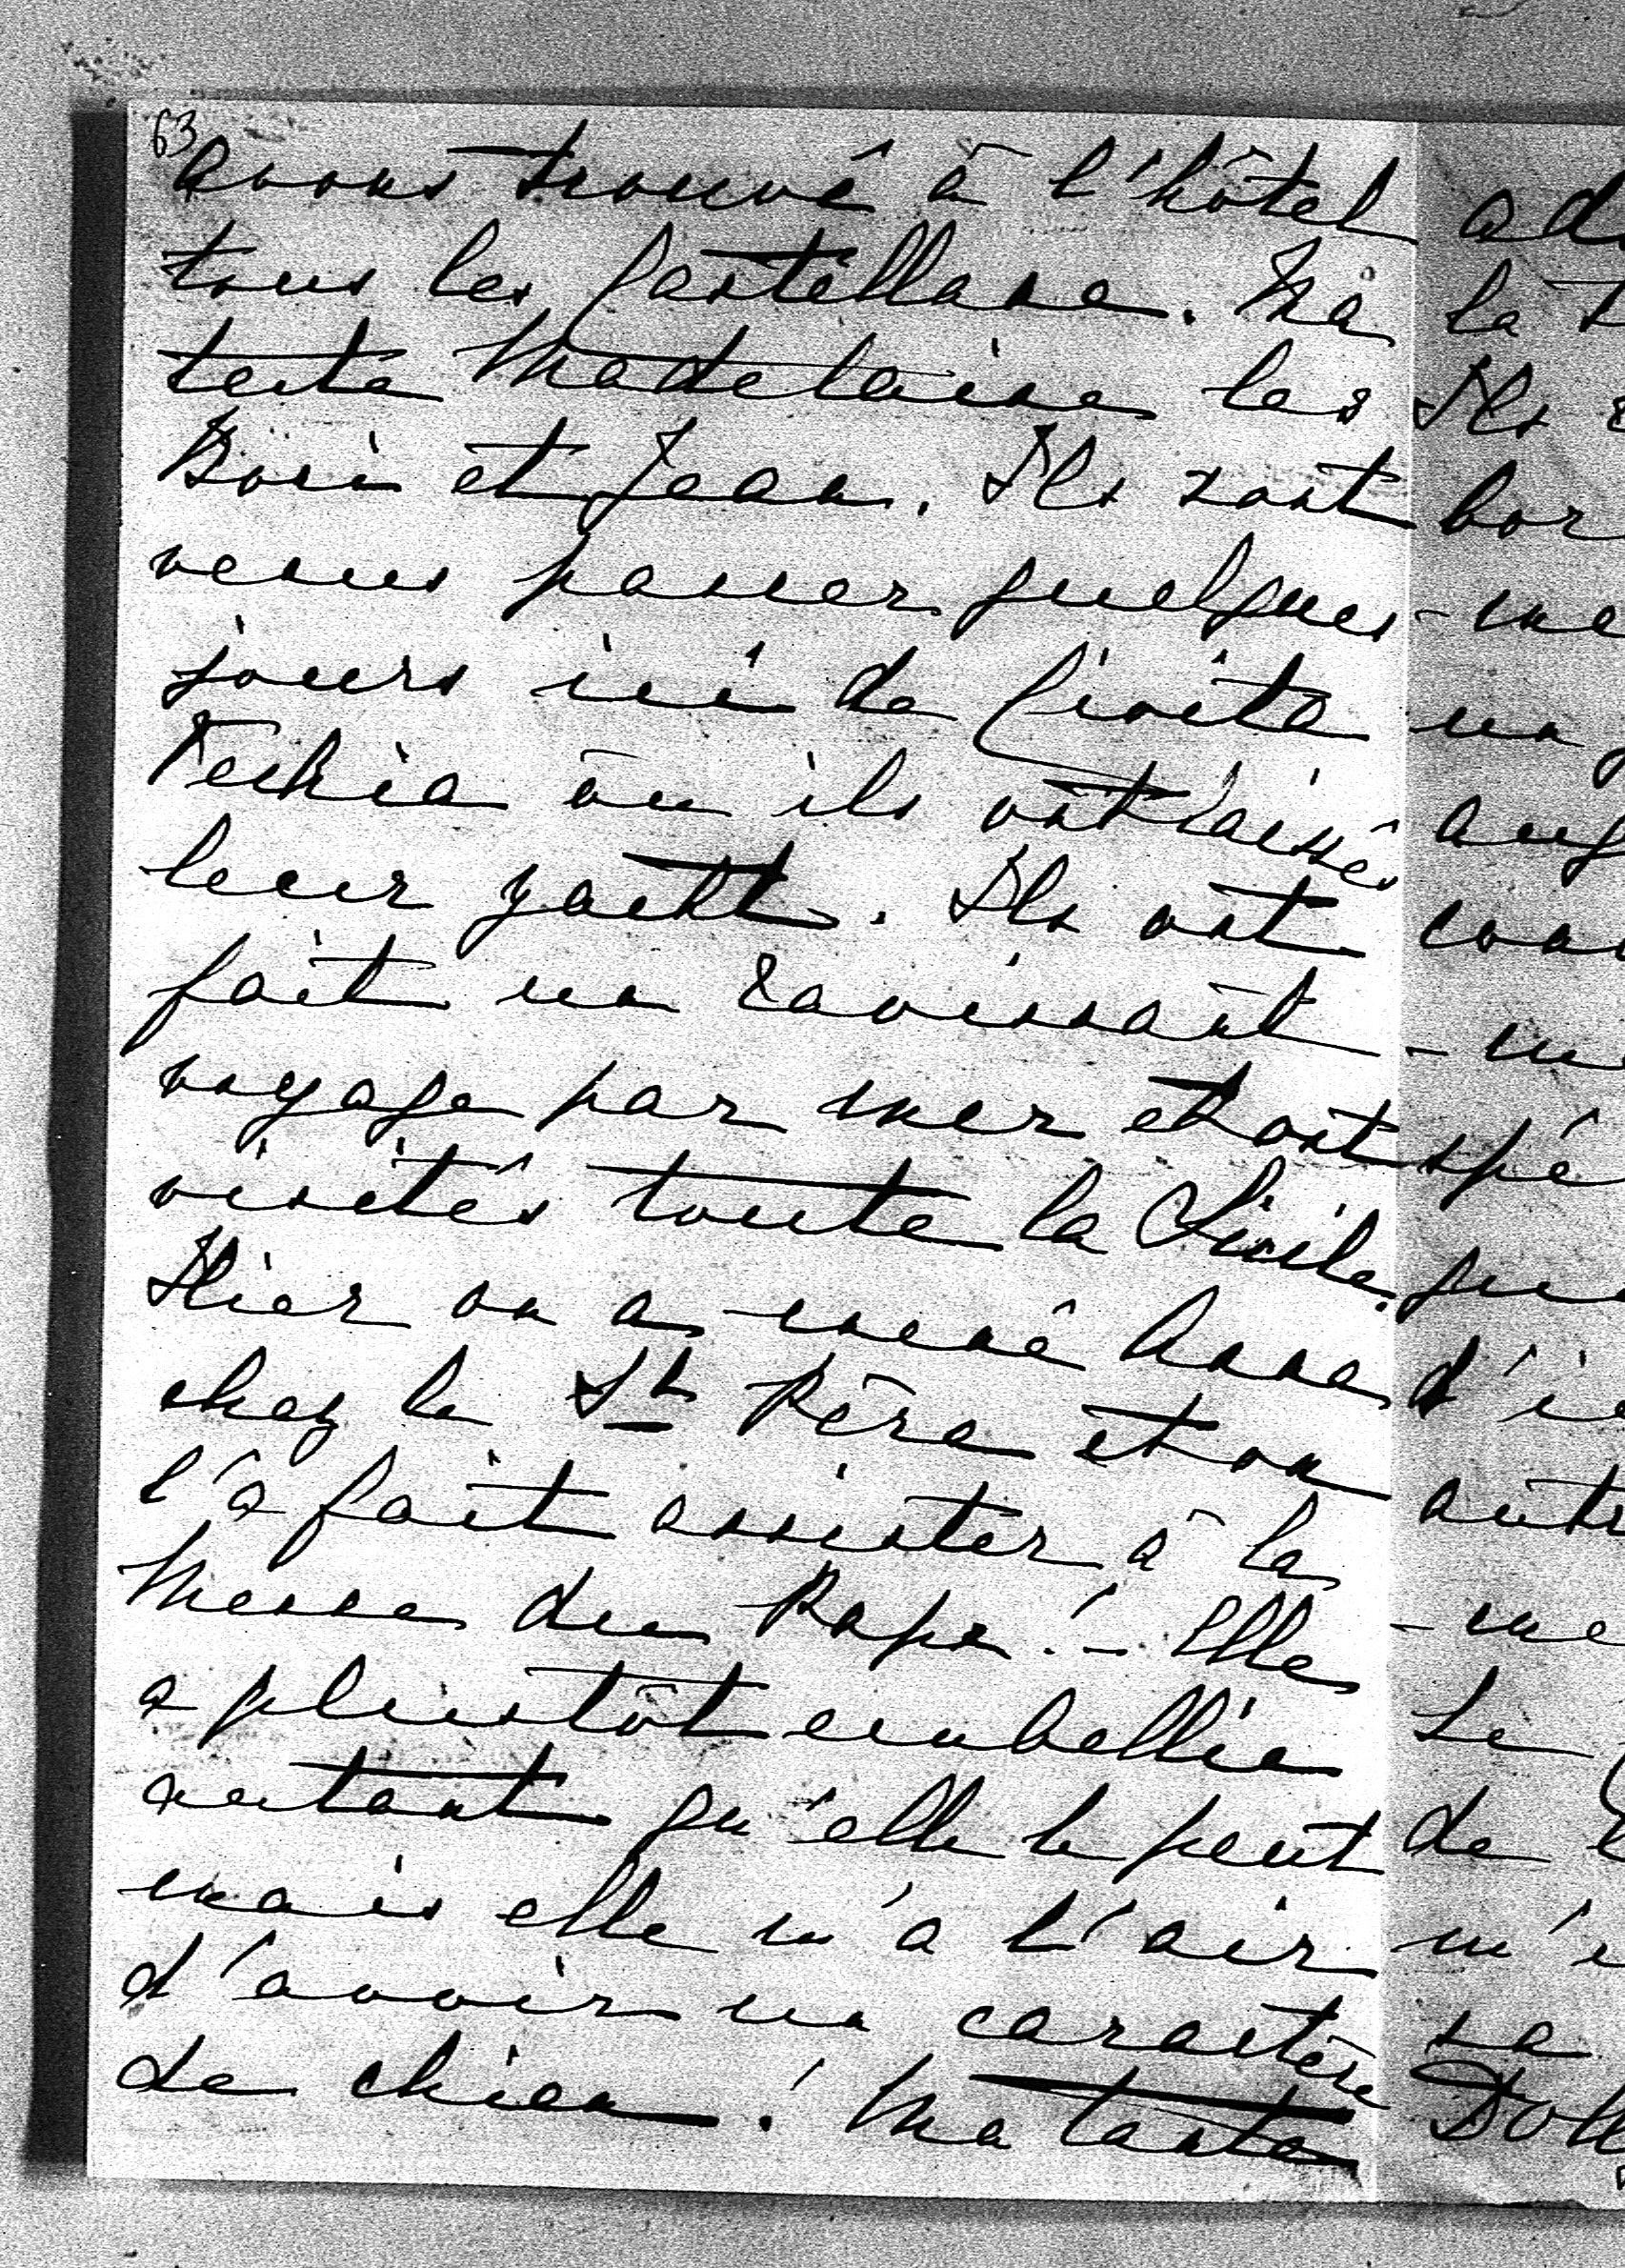 63
avons trouvé à l'hôtel
tous les Castellane. Ma
tente Madelaine les
Boni et Jean. Ils sont
venus passer quelques
jours ici de Civita
Vechia ou ils ont laissés
leur yacht. Ils ont
fait un ravissant
voyage par mer et ont
visités toute la Sicile.
Hier on a mené Anna
chez le St Père et on
l'a fait assister à la
Messe du Pape! - Elle
a plustôt embellie
autant qu'elle le peut
mais elle m'a l'air
d'avoir un caractère
de chien! Ma tante